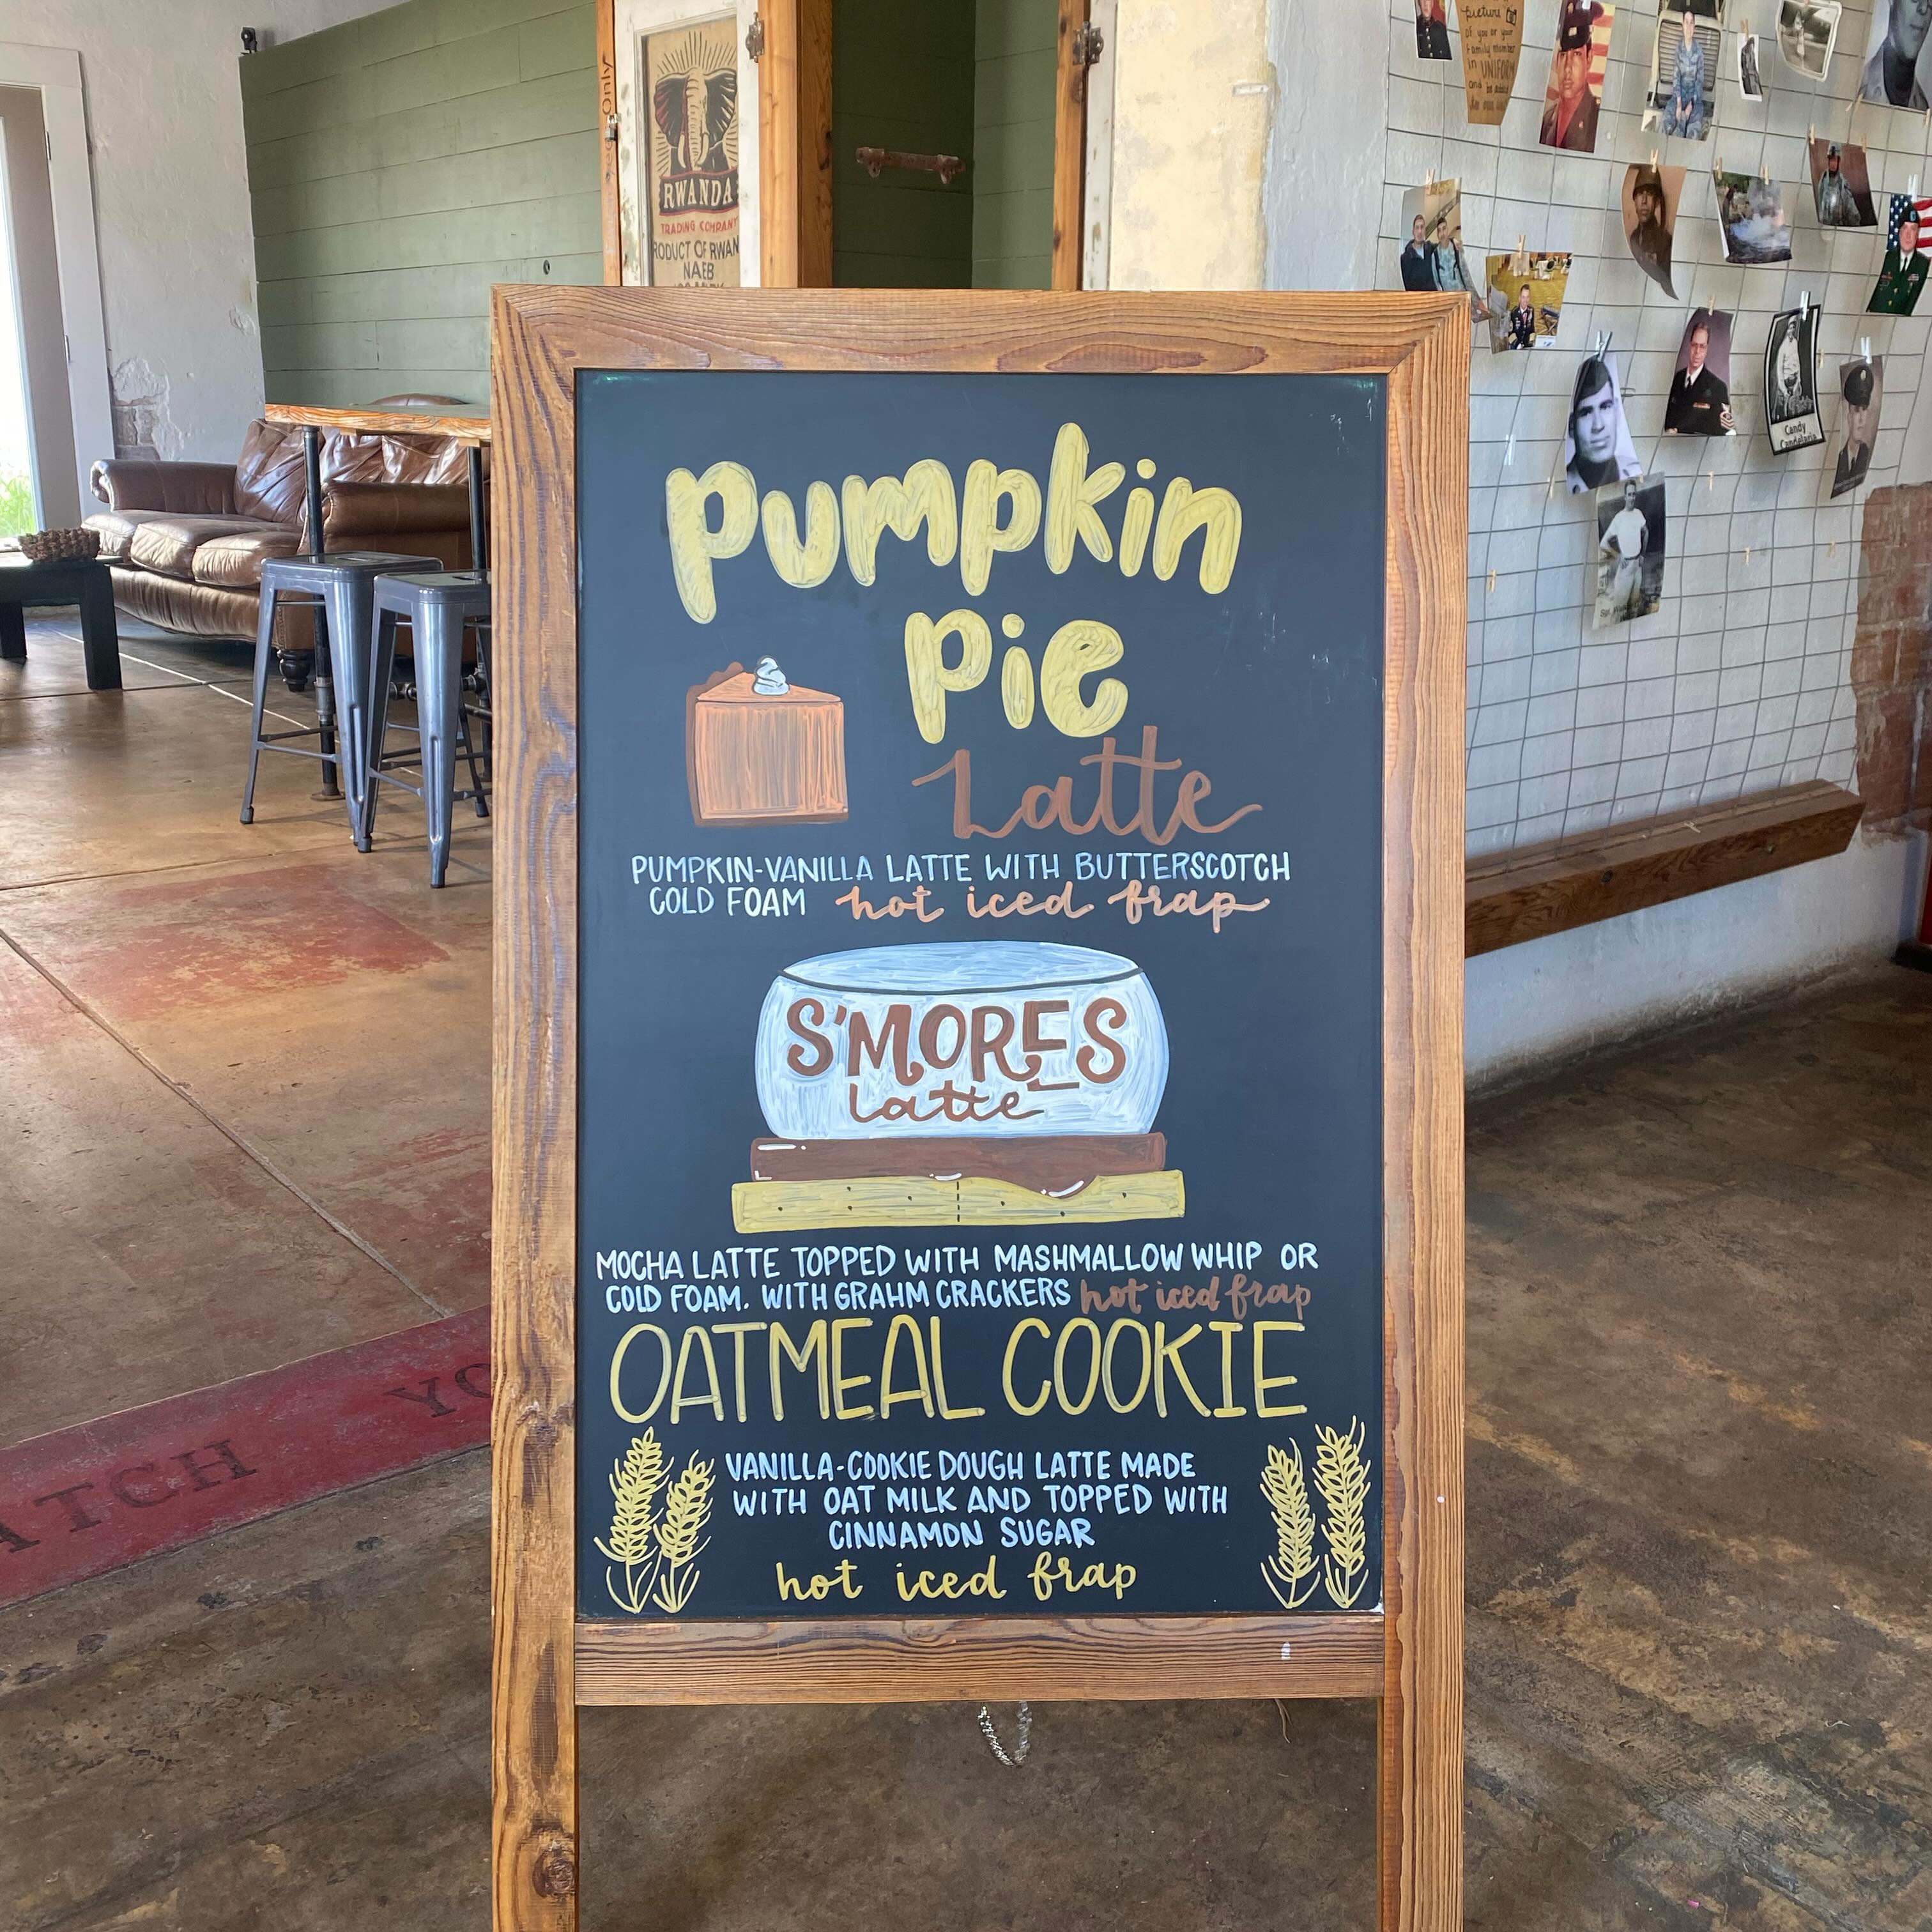 picture
of you or your
family member
in UNIFORM
and
Only
RWANDA
TRADING COMPANY
PRODUCT OF RWAN
NAEB
Candy
Candelaria
Pumpkin
Pie
Latte
PUMPKIN-VANILLA LATTE WITH BUTTERSCOTCH
COLD FOAM hot iced frap
S'MORES
latte
MOCHA LATTE TOPPED WITH MASHMALLOW WHIP OR
COLD FOAM. WITH GRAHM CRACKERS hot iced frap
OATMEAL COOKIE
VANILLA-COOKIE DOUGH LATTE MADE
WITH OAT MILK AND TOPPED WITH
CINNAMON SUGAR
hot iced frap
ATCH YO